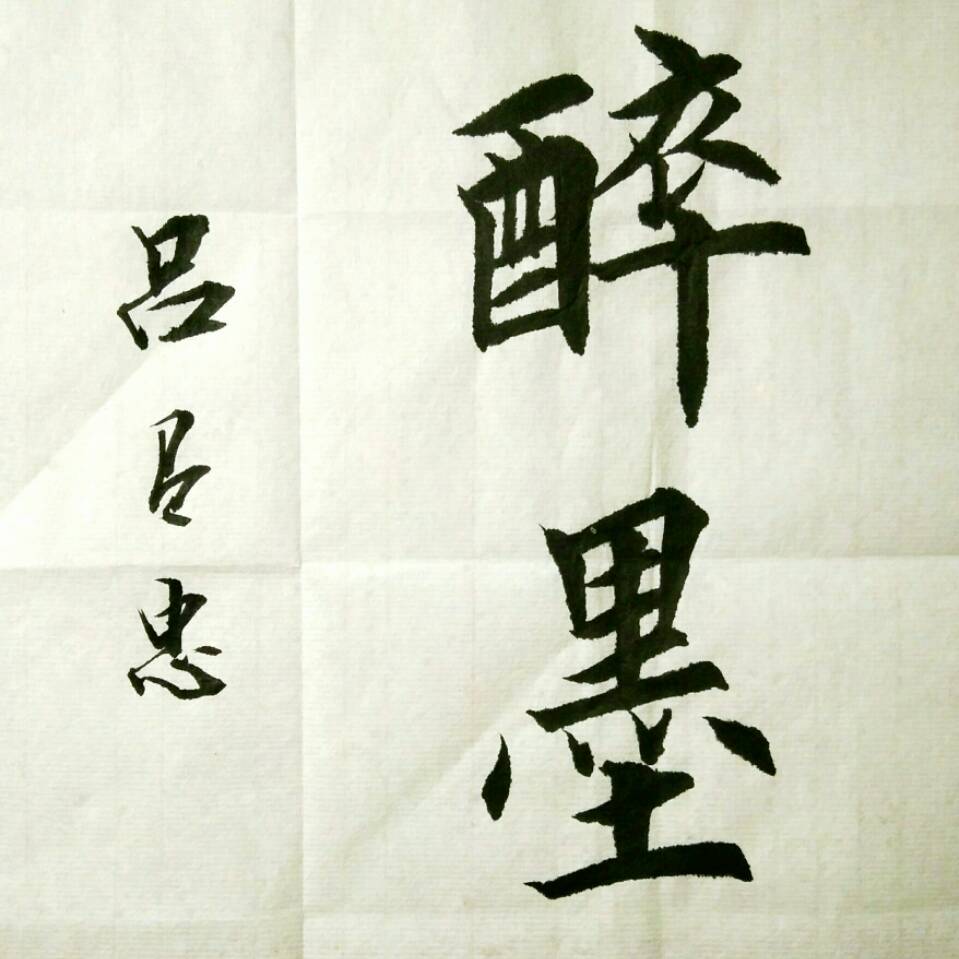 醉墨
吕吕忠